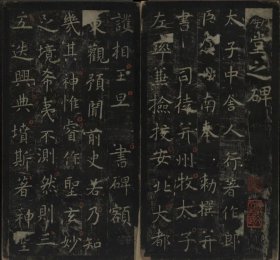 堂之碑
太子中舍人行著作郎
臣虞世南奉 勅撰并
書 司徒并州牧太子
左率兼檢校安北大都
護相王旦 書碑額
東觀預聞前史若乃知
幾其神惟睿作聖玄妙
之境希夷不測然則三
五迭興典墳斯著神